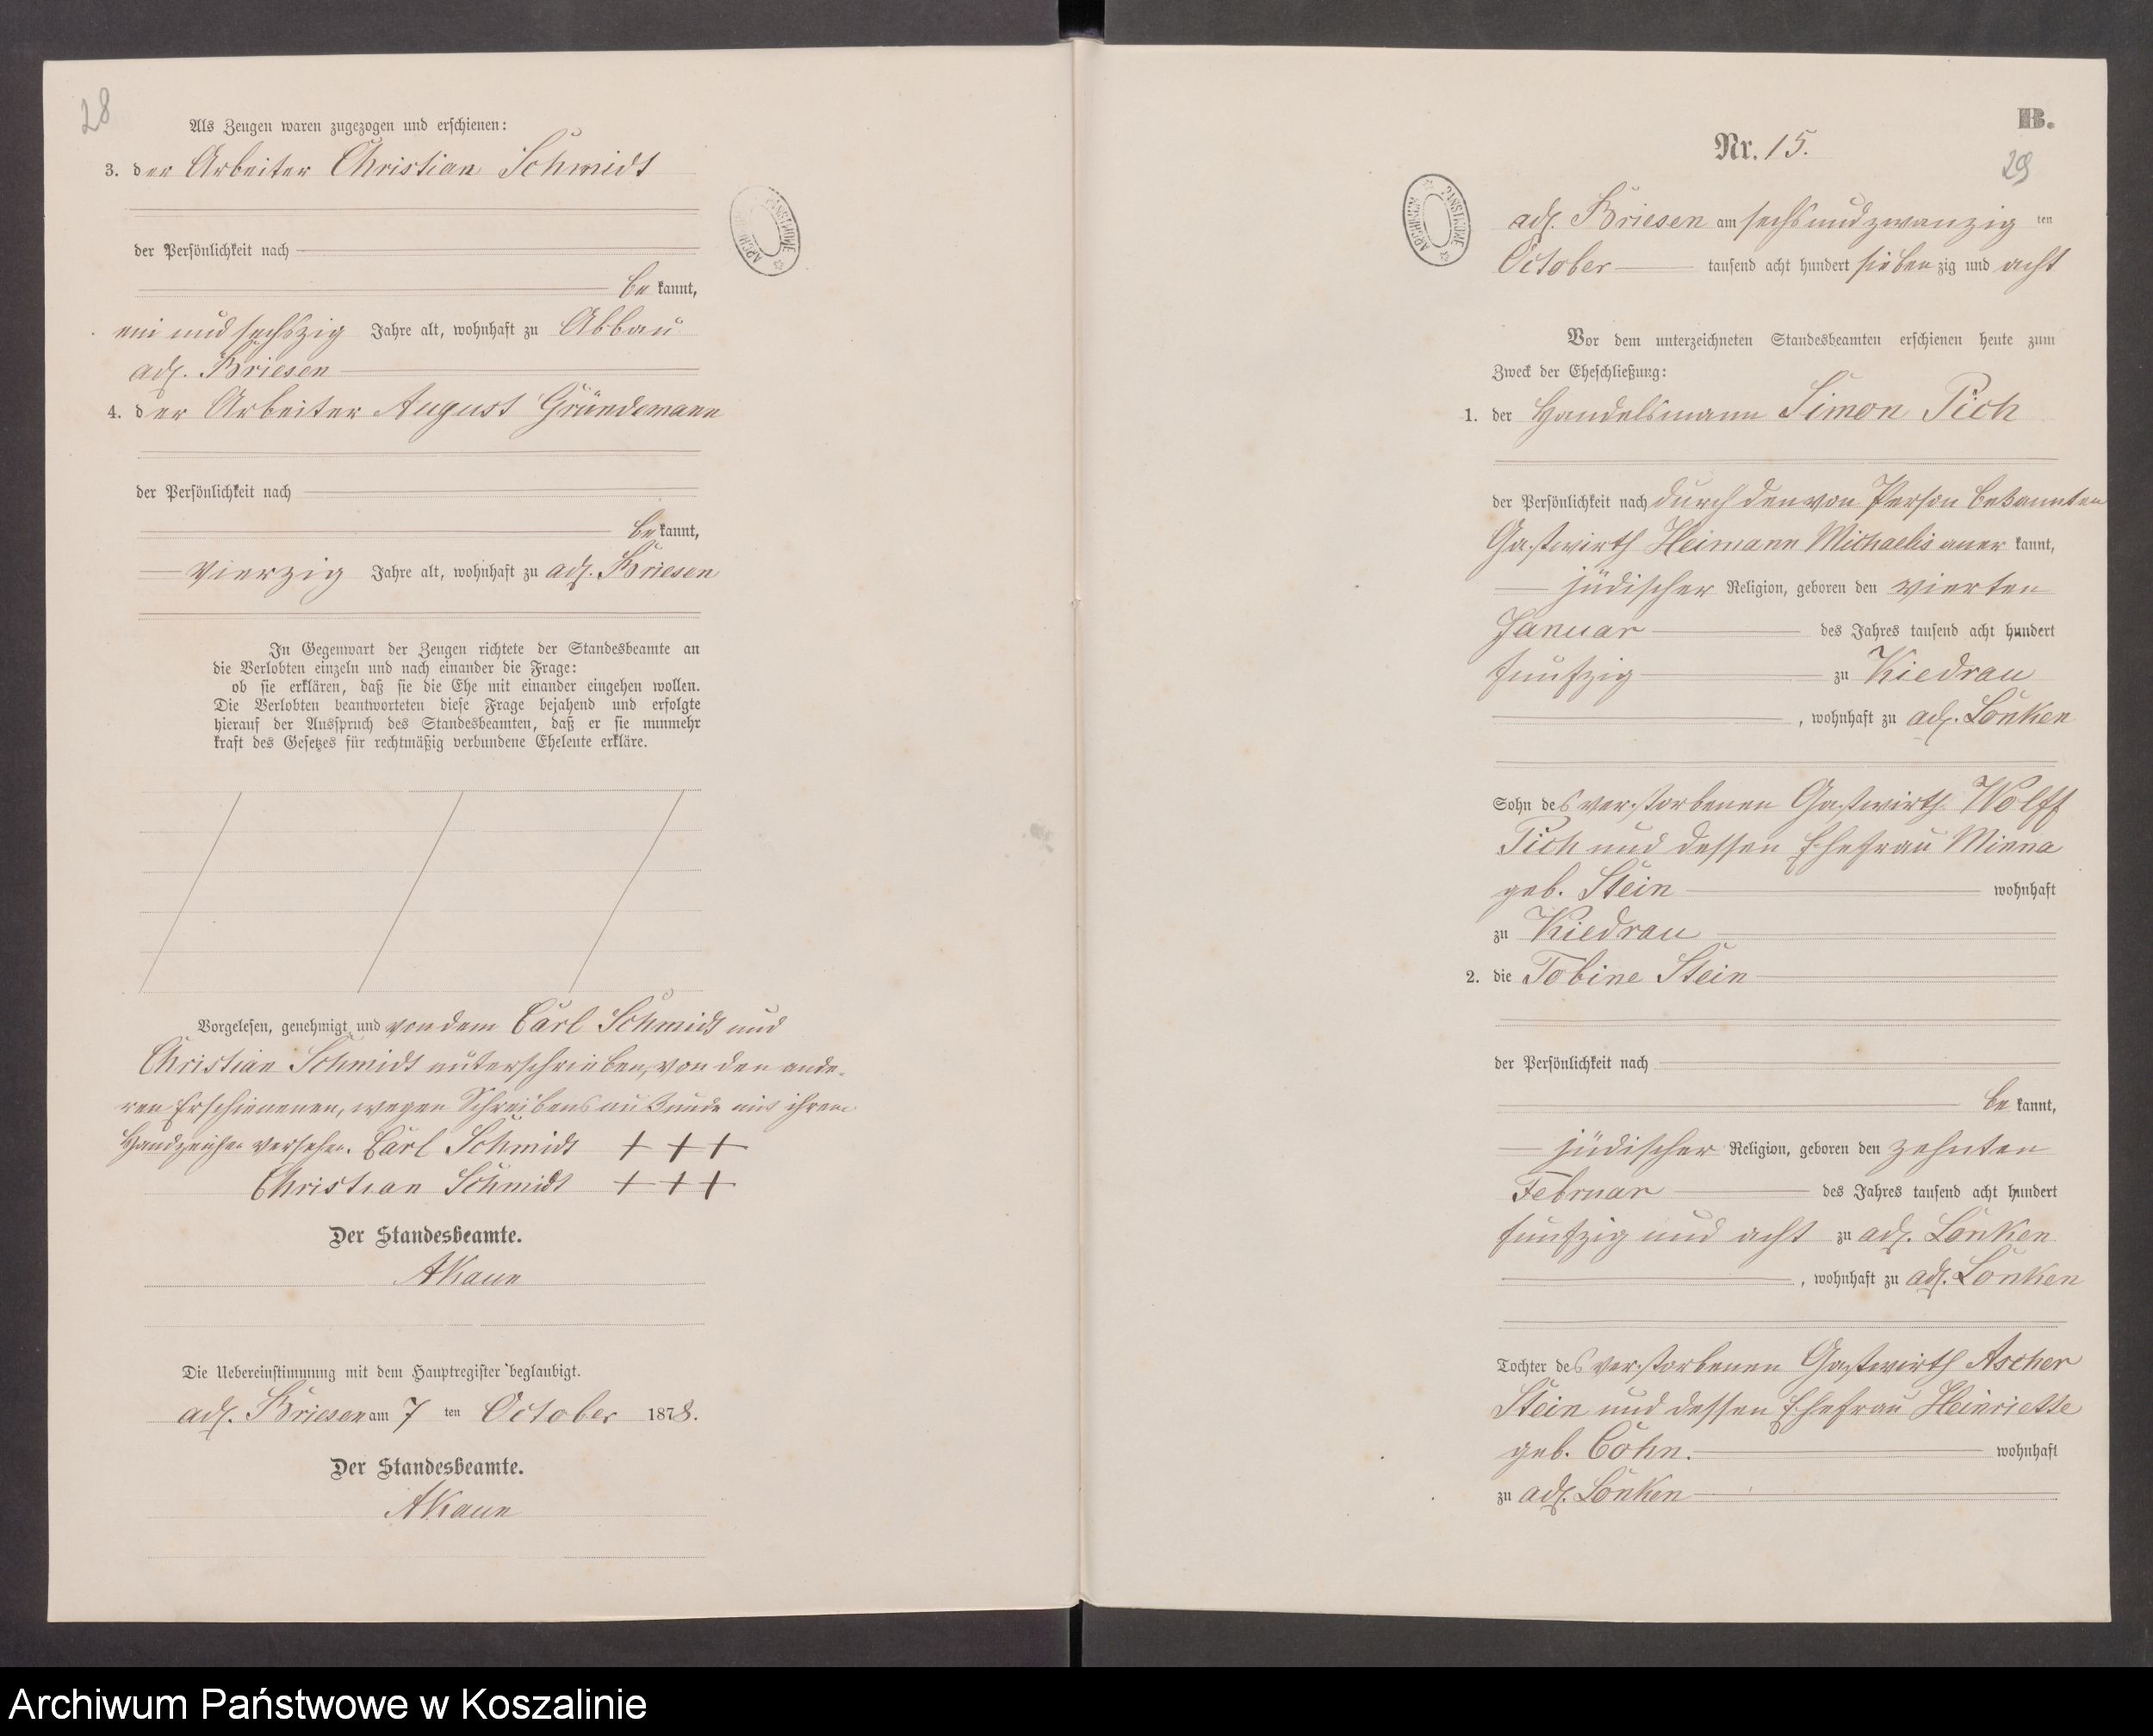 28
Als Zeugen waren zugezogen und erschienen:
3. der Arbeiter Christian Schmidt
der Persönlichkeit nach
be kannt,
ein und sechszig Jahre alt, wohnhaft zu Abbau
adl. Briesen
4. der Arbeiter August Gründemann
der Persönlichkeit nach
be kannt,
vierzig Jahre alt, wohnhaft zu adl. Briesen
In Gegenwart der Zeugen richtete der Standesbeamte an
die Verlobten einzeln und nach einander die Frage:
ob sie erklären, daß sie die Ehe mit einander eingehen wollen.
Die Verlobten beantworteten diese Frage bejahend und erfolgte
hierauf der Ausspruch des Standesbeamten, daß er sie nunmehr
kraft des Gesetzes für rechtmäßig verbundene Eheleute erkläre.
Vorgelesen, genehmigt und von dem Carl Schmidt und
Christian Schmidt unterschrieben, von den ande-
ren Erschienenen, wegen Schreibensunkunde mit ihrem
Handzeichen versehen. Carl Schmidt + + +
Christian Schmidt + + +
Der Standesbeamte.
AKaun
Die Uebereinstimmung mit dem Hauptregister beglaubigt.
adl. Briesen am 7 ten October 1878.
Der Standesbeamte.
AKaun
ARCHIWUM PAŃSTWOWE
B.
Nr. 15.
29
ARCHIWUM PAŃSTWOWE
adl. Briesen am sechsundzwanzig ten
October tausend acht hundert sieben zig und acht
Vor dem unterzeichneten Standesbeamten erschienen heute zum
Zweck der Eheschließung:
1. der Handelsmann Simon Pich
der Persönlichkeit nach durch den von Person bekannten
Gastwirth Heimann Michaelis aner kannt,
jüdischer Religion, geboren den vierten
Januar des Jahres tausend acht hundert
funfzig zu Kiedrau
, wohnhaft zu adl. Lonken
Sohn des verstorbenen Gastwirth Wolff
Pich und dessen Ehefrau Minna
geb. Stein wohnhaft
zu Kiedrau
2. die Tobine Stein
der Persönlichkeit nach
be kannt,
jüdischer Religion, geboren den zehnten
Februar des Jahres tausend acht hundert
funfzig und acht zu adl. Lonken
, wohnhaft zu adl. Lonken
Tochter des verstorbenen Gastwirth Ascher
Stein und dessen Ehefrau Heinriette
geb. Cohn. wohnhaft
zu adl. Lonken
Archiwum Państwowe w Koszalinie